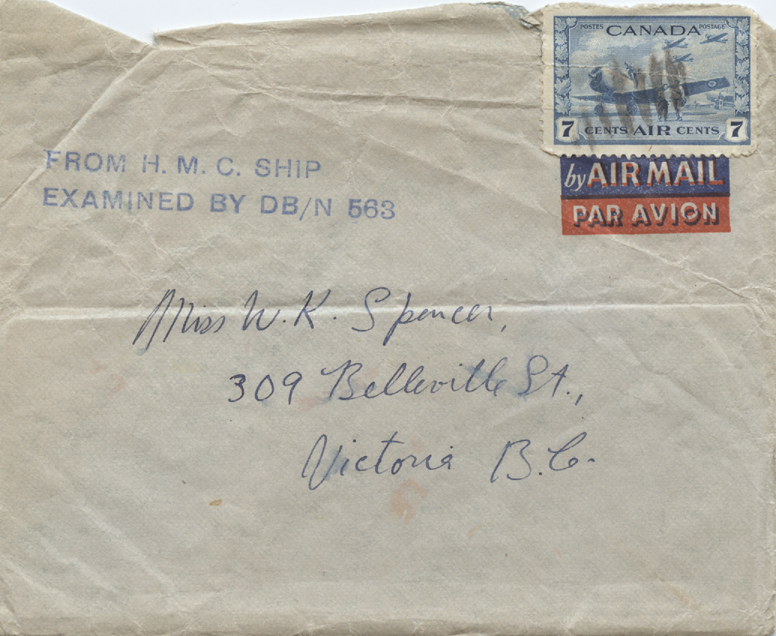 POSTES CANADA POSTAGE
7 CENTS AIR CENTS 7
by AIR MAIL
PAR AVION
FROM H. M. C. SHIP
EXAMINED BY DB/N 563
Miss W. K. Spencer,
309 Belleville St.,
Victoria B.C.